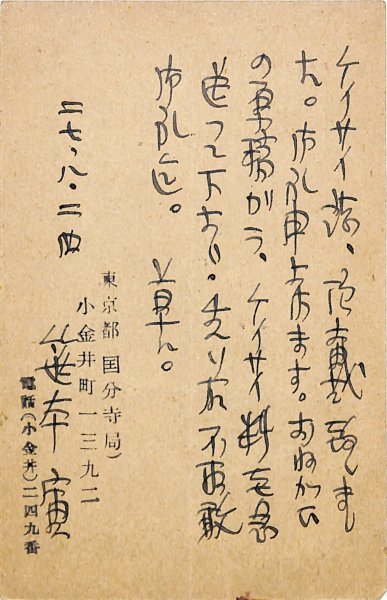 ケイサイ誌、頂戴致しまし
た。御礼申上げます。
の ケイサイ料を
送つて下さい。 右不取敢
御礼迄。 草々。
二七、八、二四
東京都 国分寺局)
小金井町一三九二
笹本寅
電話(小金井)二四九番